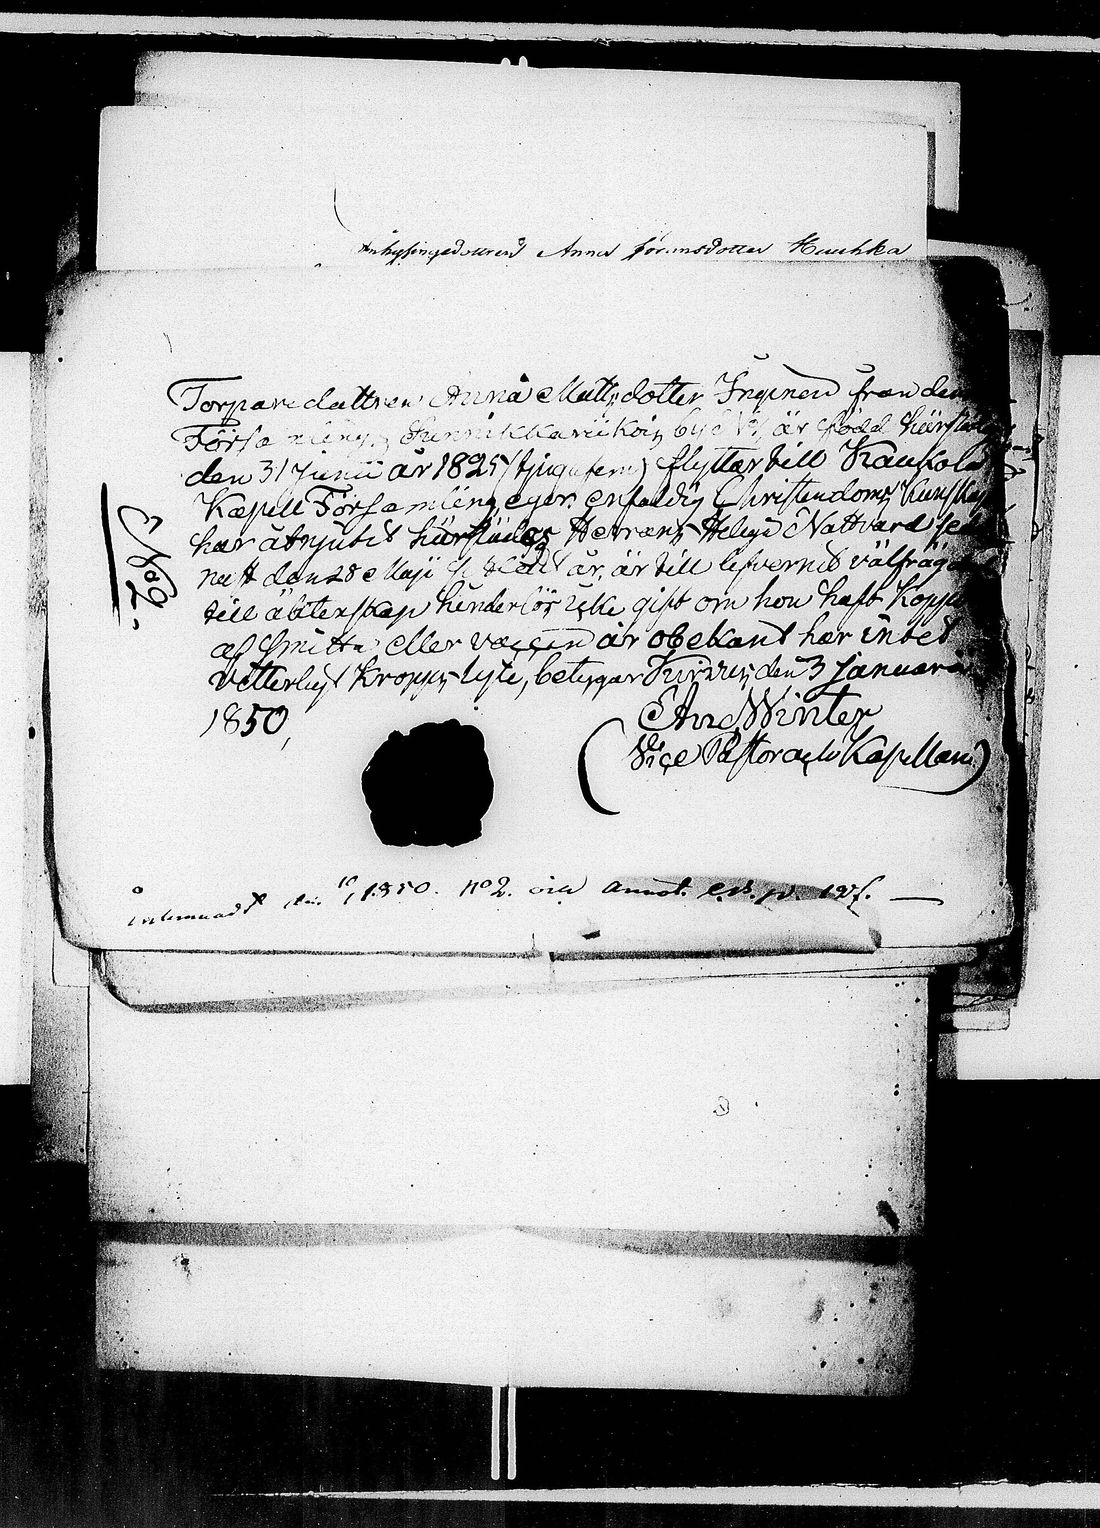 Anna Jöransdotter Huuhka
Torparedottren Anna Mattsdotter Inginen från den
Församling, by No 1, är född härstädes
den 31 Junii år 1825 (tjugufem) flyttar till Kaukola
Kapell Församling, eger enfaldig Christendoms Kunskap
har åtnjutit härstädes Herrans Heliga Nattvard
den 28 Maji år, är till lefvernet välfrägdad
till äktenskap hinderlös icke gift om hon haft Koppor
af Smitta eller vaccin är obekant har intet
Vetterligt Kropps lyte, betygar den 3 Januari
1850,
And Winter
(Vice Pastor och Kapellan)
No 2.
1850. No 2. och annot. p. 127.